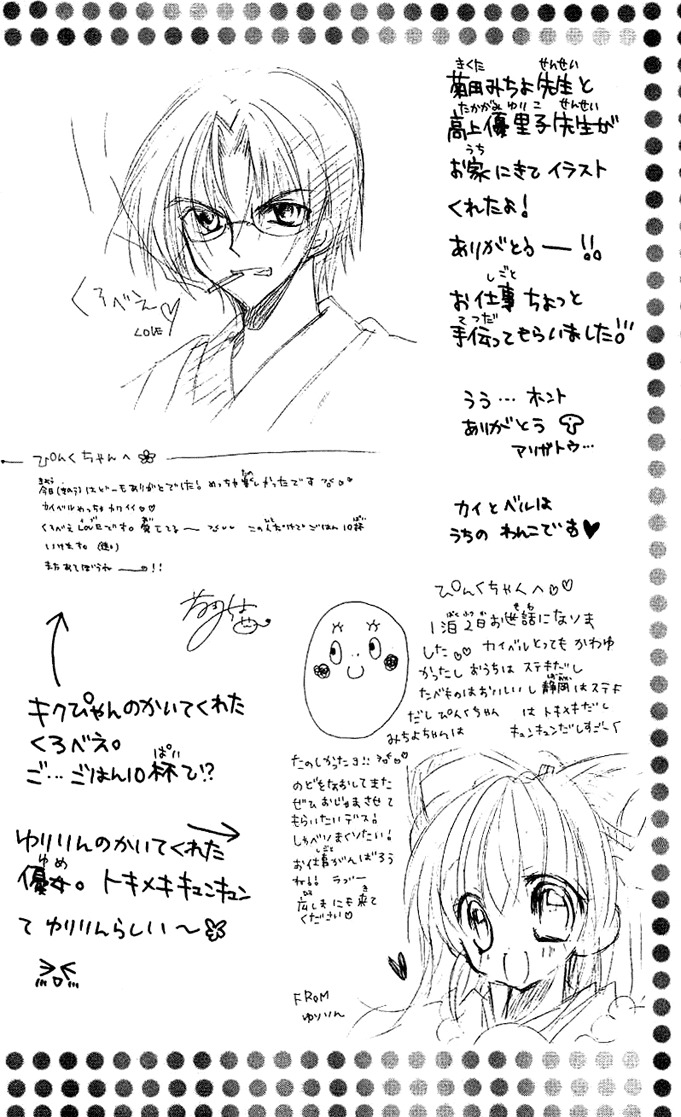 菊田みちよ先生と
高上優里子先生が
お家にきてイラスト
くれたよ!
ありがとうー!!
お仕事ちょっと
手伝ってもらいました!!
うう…ホント
ありがとう
アリガトウ…
カイとベルは
うちのわんこです♥
くろべえ♡
LOVE
ぴんくちゃんへ
今日(きのう)はどーもありがとでした!めっちゃ楽しかったです
カイベルめっちゃカワイイ♡♡
くろべえLoveです。愛してるー このイラストだけでごはん10杯
いけます。
またあそぼうねー!!
キクぴゃんのかいてくれた
くろべえ。
ご…ごはん10杯で!?
ゆりりんのかいてくれた
優女。トキメキキュンキュン
て ゆりりんらしい〜
ぴんくちゃんへ♡♡
1泊2日お世話になりま
した♡♡ カイベルとってもかわゆ
かったしおうちはステキだし
たべものはおいしいし静岡はステキ
だしぴんくちゃんはトキメキだし
みちよちゃんはキュンキュンだしすごーく
たのしかったヨ!!
のどをなおしてまた
ぜひおじゃまさせて
もらいたいデス!
しゃべりまくりたい!
お仕事がんばろう
ね!! ラブー
広しまにも来て
ください♡
FROM
ゆりりん